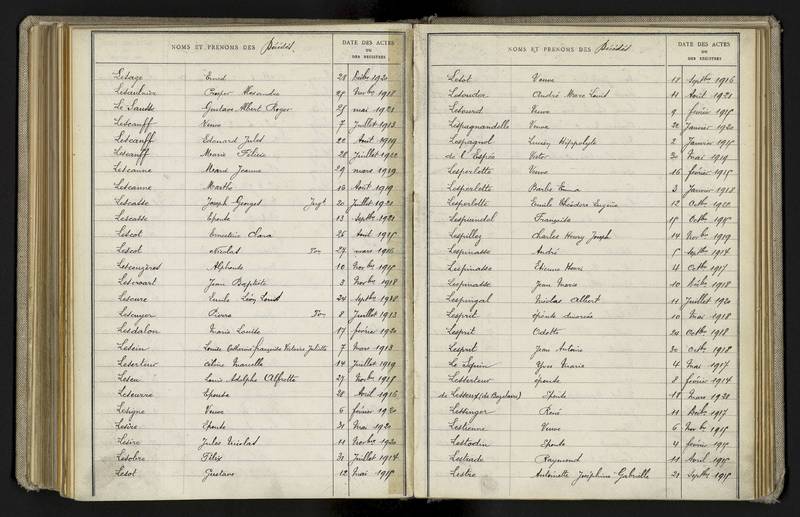 NOMS ET PRENOMS DES Décédés.
DATE DES ACTES
OU
DES REGISTRES
Lesage Ernest 28 1920
Lesaulnier Prosper Alexandre 25 Novbre 1918
Le Sausse Gustave Albert Roger 25 mai 1921
Lescanff Veuve 7 Juillet 1913
Lescanff Edouard Jules 22 Août 1919
Lescanff Marie Félicie 28 Juillet 1920
Lescanne Marie Jeanne 29 mars 1919
Lescanne Marthe 16 Août 1919
Lescasse Joseph Georges Jugt 20 Juillet 1921
Lescasse Epouse 13 Septbre 1921
Lescot Ernestine Clara 25 Avril 1915
Lescot Nicolas Ton 27 mars 1916
Lescuyères Alphonse 10 Novbre 1915
Jean Baptiste 3 Novbre 1918
Lescure Emile Léon Louis 24 Septbre 1918
Lescuyer Pierre Ton 8 Juillet 1913
Lesdalon Marie Louise 17 février 1920
Lesein Louise Catherine françoise Victoire Juliette 7 mars 1913
Leserteur Céline Marcelle 14 Juillet 1919
Leseu Louis Adolphe Alfred 27 Novbre 1915
Leseurre Epouse 28 Avril 1916
Lesigne Veuve 6 février 1920
Lesire Epouse 31 Mai 1920
Lesire Jules Nicolas 11 Novbre 1920
Lesobre Félix 31 Juillet 1914
Lesot Gustave 12 Mai 1915
NOMS ET PRENOMS DES Décédés
DATE DES ACTES
OU
DES REGISTRES
Lesot Veuve 17 Septbre 1916
Lesouder André Marc Louis 11 Août 1921
Lesourd Veuve 9 février 1915
Lespagnandelle Veuve 22 Janvier 1920
Lespagnol Lucien Hippolyte 2 Janvier 1915
de l'Espée Victor 30 mai 1919
Lesperlette Veuve 16 février 1915
Lesperlette Barbe Emma 3 Janvier 1918
Lesperlette Emile Théodore Eugène 12 Octbre 1920
Françoise 15 Octbre 1915
Lespillez Charles Henry Joseph 14 Novbre 1919
Lespinasse André 5 Septbre 1914
Lespinasse Etienne Henri 4 Octbre 1917
Lespinasse Jean Marie 10 1918
Lespingal Nicolas Albert 11 Juillet 1920
Lesprit épouse divorcée 10 Mai 1918
Lesprit Odette 24 Octbre 1918
Lesprit Jean Antoine 30 Octbre 1918
Yves Marie 4 Mai 1917
Lesserteur épouse 8 février 1914
de Lesseux (de Bazelaire) Epouse 18 Mars 1920
Lessinger René 11 Août 1917
Lestienne Veuve 6 Novbre 1915
Lestocdin Epouse 4 février 1915
Lestrade Raymond 11 Avril 1915
Lestre Antoinette Joséphine Gabrielle 21 Septbre 1915